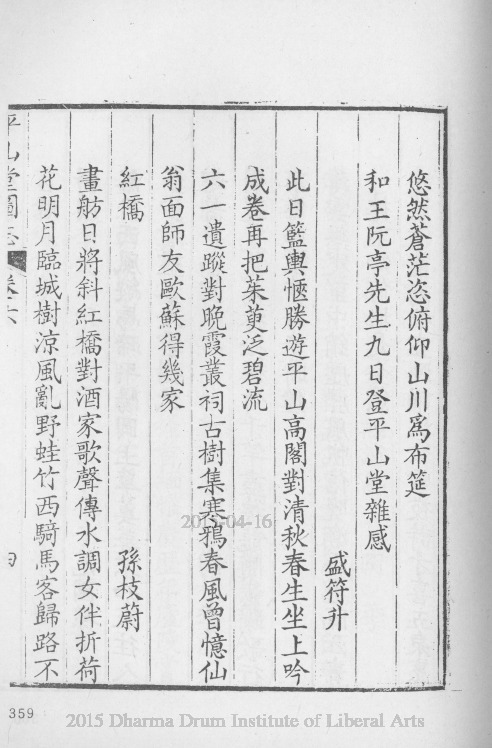 悠然蒼茫恣俯仰山川爲布筵
和王阮亭先生九日登平山堂雜感
盛符升
此日籃輿愜勝遊平山高閣對清秋春生坐上吟
成卷再把茱萸泛碧流
六一遺蹤對晚霞叢祠古樹集寒鴉春風曾憶仙
翁面師友歐蘇得幾家
紅橋　孫枝蔚
畫舫日將斜紅橋對酒家歌聲傳水調女伴折荷
花明月臨城樹涼風亂野蛙竹西騎馬客歸路不
平山堂圖志 卷六
四
359
2015-04-16
2015 Dharma Drum Institute of Liberal Arts